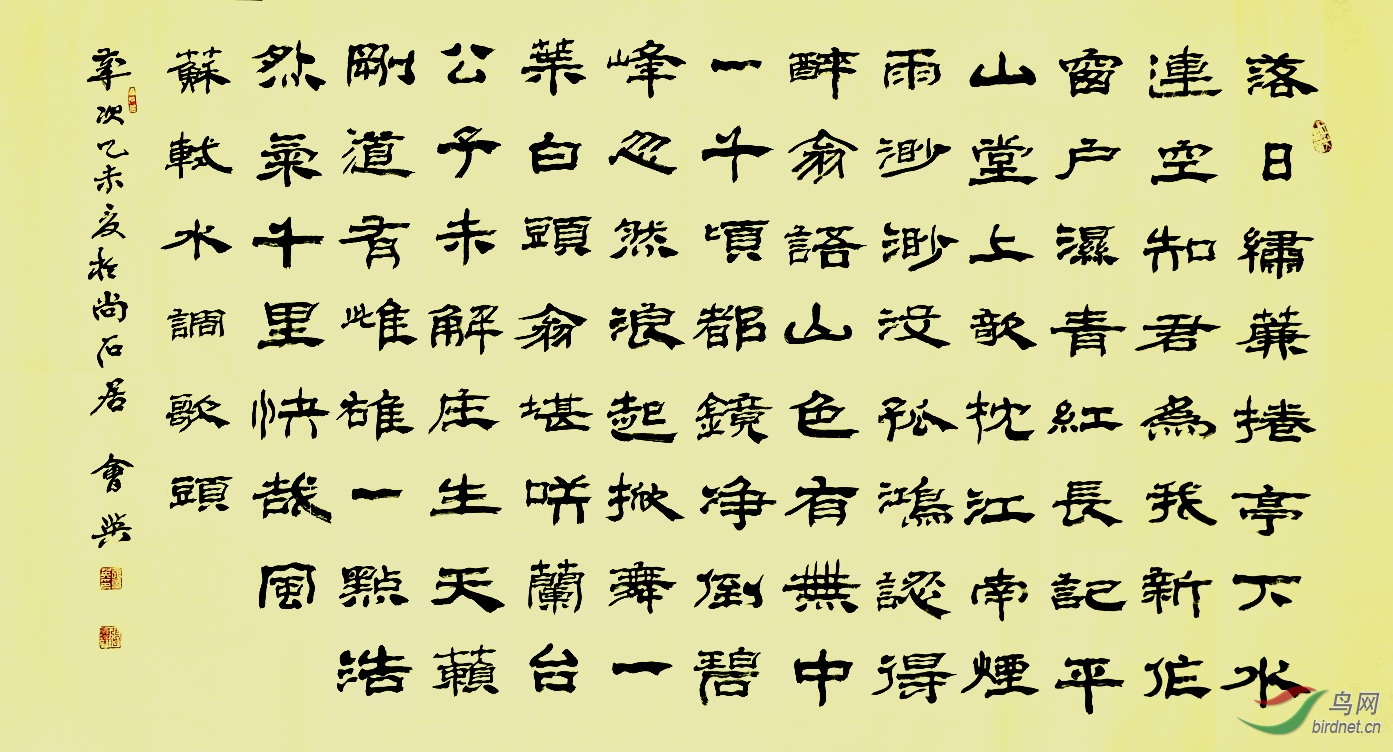 落日繡簾捲亭下水
連空知君為我新作
窗户濕青紅長記平
山堂上欹枕江南煙
雨渺渺没孤鴻認得
醉翁語山色有無中
一千頃都鏡净倒碧
峰忽然浪起掀舞一
葉白頭翁堪咲蘭台
公子未解庄生天籟
剛道有雌雄一點浩
然氣千里快哉風
蘇軾水調歌頭
歲次乙未夏於尚石居 會
鸟网
birdnet.cn